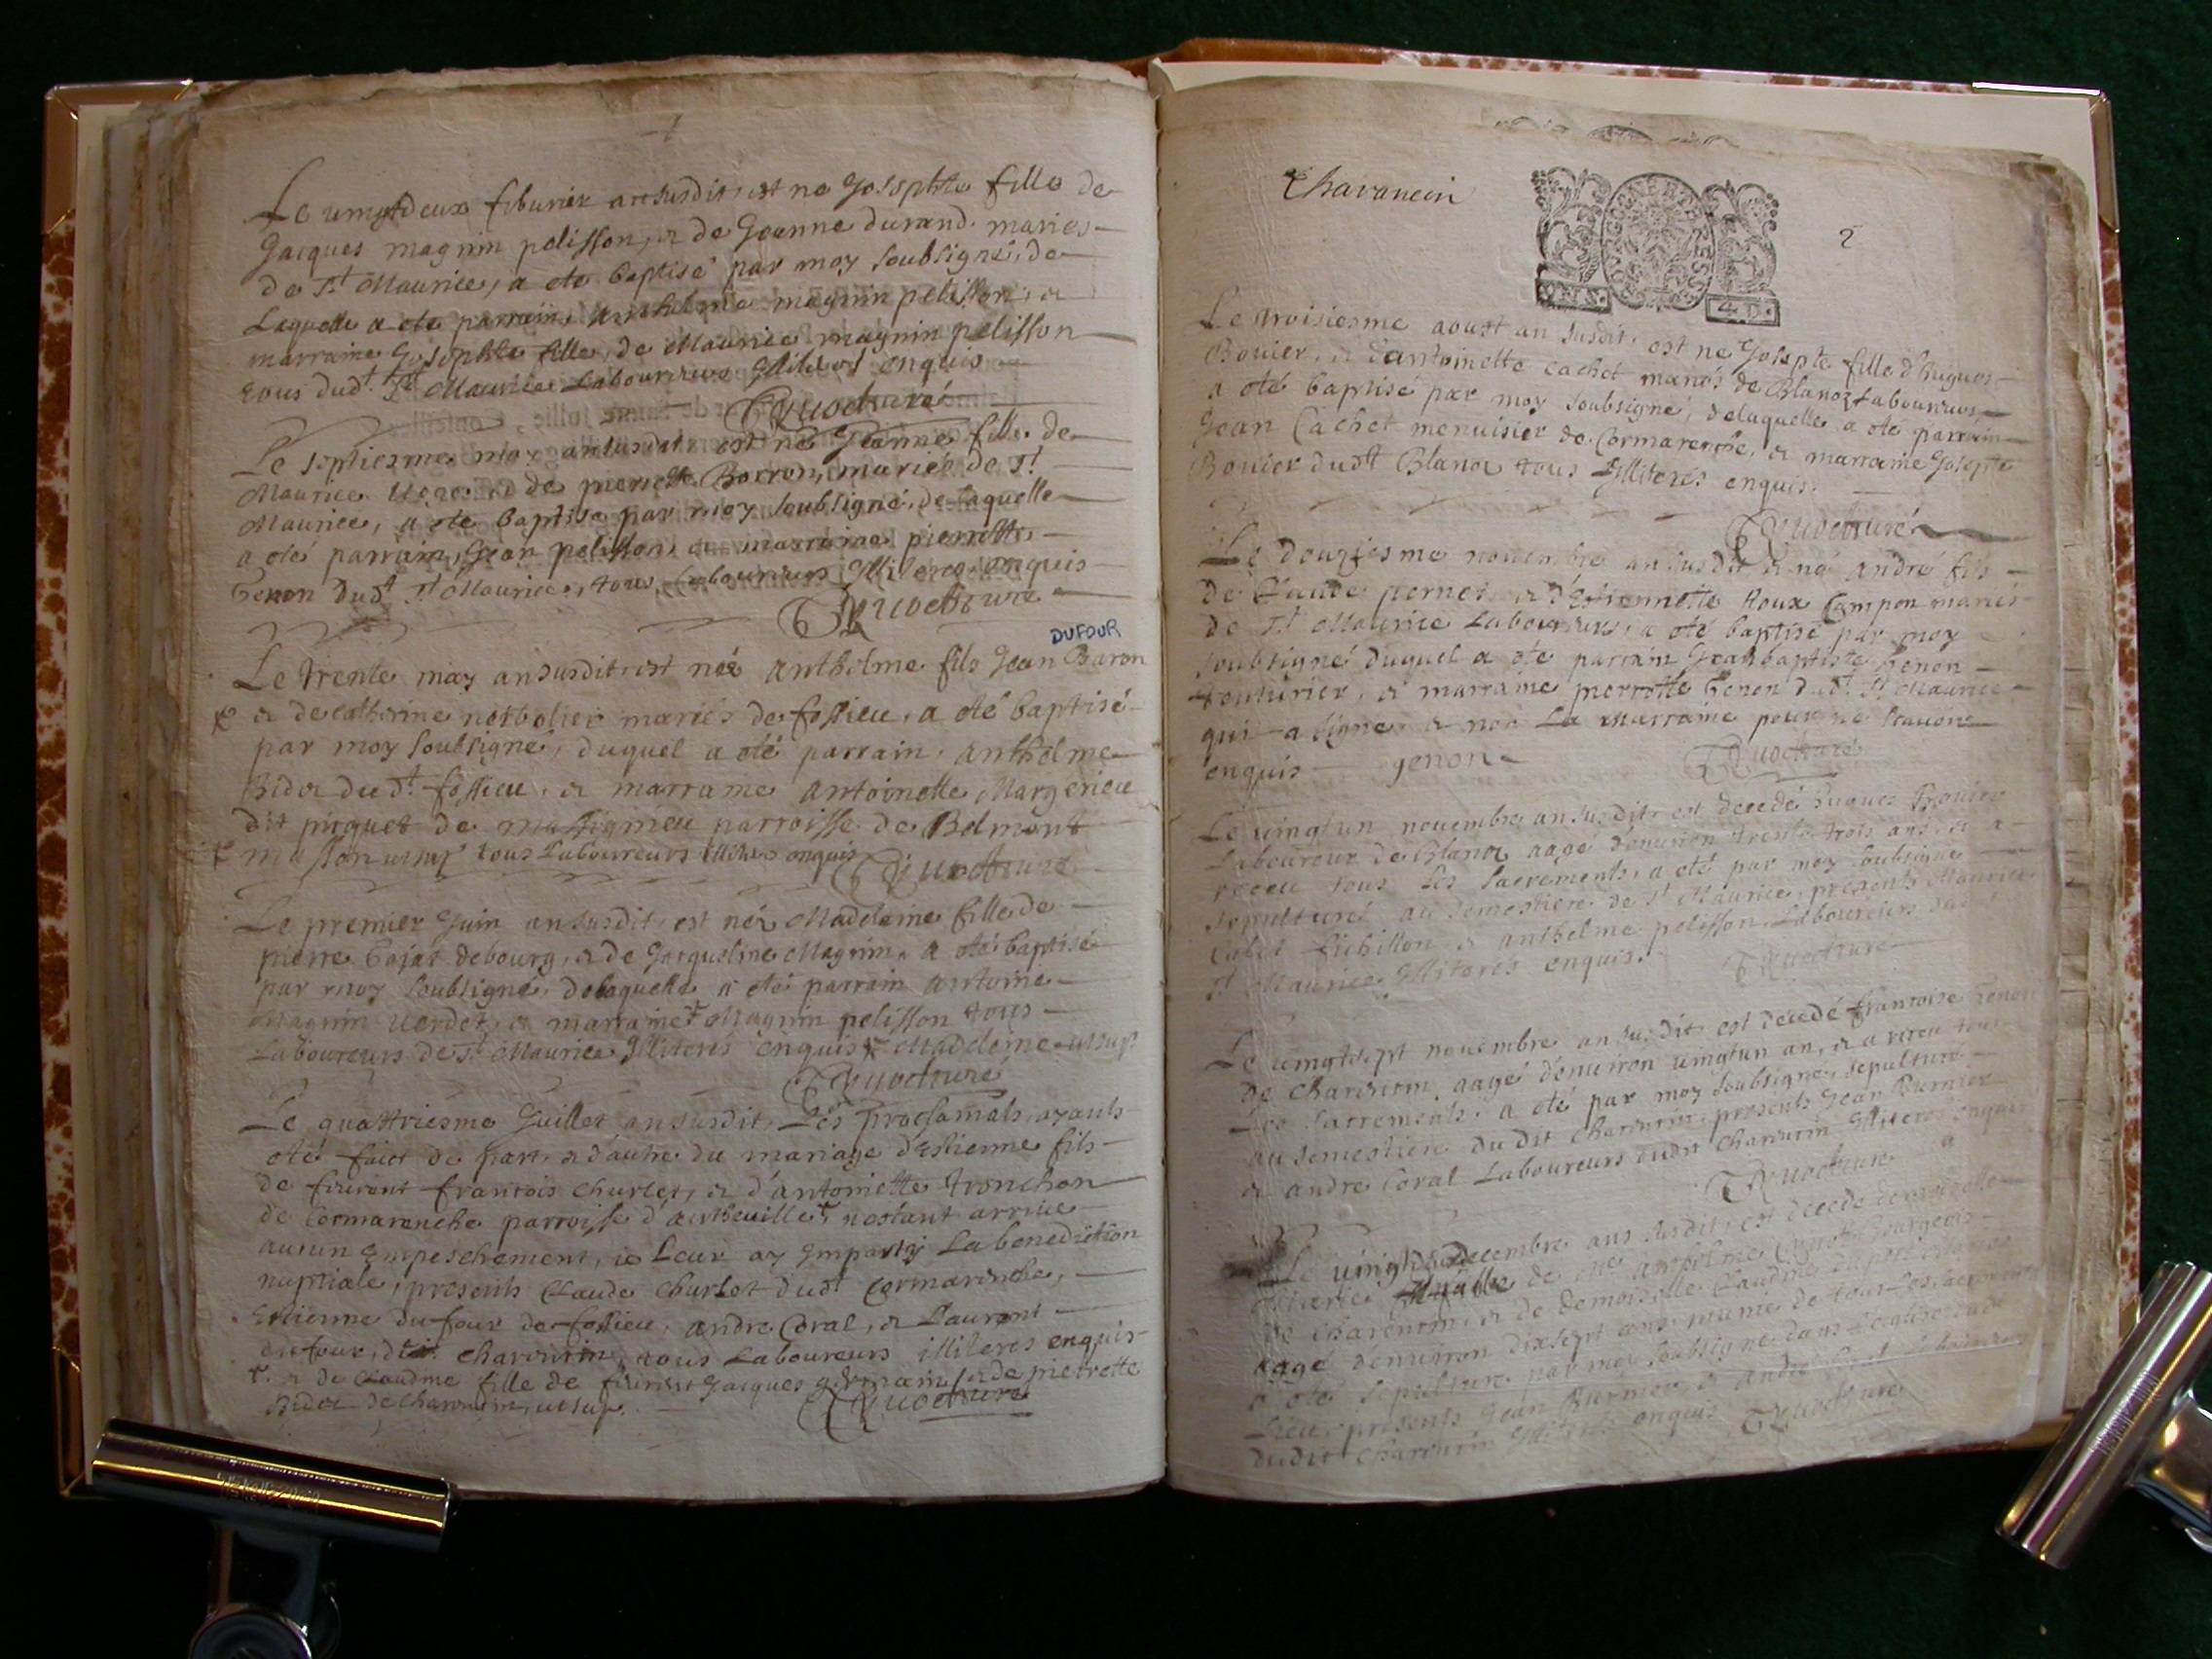 Le vingtdeux feburier an susdit est ne Josephte fille de
Jacques magnin pelisson, et de Jeanne durand mariés
de St Maurice, a oté baptisé par moy soubsigné, de
Laquelle a oté parrain, Anthelme magnin pelisson, et
marraine Josephte fille de Maurice magnin pelisson
tous dudt St Maurice Laboureurs Illiterés enquis
Le septiesme may an susdit est né Jeanne fille de
Maurice et de pierrette Borron, mariés de St
Maurice, a oté baptisé par moy soubsigné, de laquelle
a oté parrain, Jean pelisson, et marraine pierrette
Genon dudt St Maurice, tous Laboureurs Illiterés enquis
DUFOUR
Le trente may an susdit est néz anthelme fils Jean Baron
et de catherine mariés de fossieu, a oté baptisé
par moy soubsigné, duquel a oté parrain anthelme
Bidet dudt fossieu, et marraine antoinette Margerieu
dit piquet de massignieu parroisse de Belmont
tous Laboureurs illiterés enquis
Le premier Juin an susdit est néz Madeleine fille de
pierre debourg, et de Jacqueline Magnin, a oté baptisé
par moy soubsigné, de laquelle a oté parrain antoine
Magnin verdet, et marraine Magnin pelisson tous
Laboureurs de St Maurice Illiterés enquis Madeleine utsup
Le quattriesme Juillet an susdit, Les proclamats, ayants
oté faict de part et d'autre du mariage d'Estienne fils
de feurent francois Churlet, et d'antoinette tronchon
de Cormaranche parroisse d'autheuille nestant arrivé
aucun Empeschement, ie Leur ay Impartÿ La benediction
nuptiale, presents Claude Churlet dudt Cormaranche,
Estienne dufour de fossieu, andre Coral, et Laurent
dufour, de charancin, tous Laboureurs illiteres enquis
et de Claudine fille de Jacques germain, et de pierrette
Bidet de Charancin, utsup.
Charancin
2
GENERALITE
4.D.
Le troisiesme aoust an susdit est ne Josepte fille d'hugues
Bouier, et d'antoinette cachet mariés de Blanoz Laboureurs
a oté baptisé par moy soubsigné, delaquelle a oté parrain
Jean Cachet menuisier de Cormaranche, et marraine Josepte
Bouier dudt Blanoz tous Illiterés enquis.
Le douziesme novembre an susdit né andré fils
de Claude pernet et d'Estiennette Roux Campon mariés
de St Maurice Laboureurs, a oté baptisé par moy
soubsigné duquel a oté parrain Jean baptiste Genon
et marraine pierrette Genon dudt St Maurice
qui a signé et non La marraine pour ne scavoir
enquis genon
Le vingtun novembre an susdit est decedé hugues Bouier
Laboureur de Blanoz aagé d'environ trente trois ans, et a
receu tous Les sacrements, a oté par moy soubsigné
sepulturé au semestiere de St Maurice, presents Maurice
Cubet et anthelme pelisson Laboureurs dudt
St Maurice Illiterés enquis.
Le vingtsept novembre an susdit est decedé francoise Genon
de Charancin, aagé d'environ vingtun an, et a receu tous
Les sacrements, a oté par moy soubsigné, sepulturé
au semestiere dudit Charancin, presents Jean Burnier
et andre Coral Laboureurs dudit Charancin Illiteres enquis
Le decembre ans susdit est decedé demoiselle
fille de Me anthelme bourgeois
de Charancin, et de demoiselle Claudine
aagé d'environ dixsept ans munie de tous Les sacrements
a oté sepulturé par moy soubsigné dans L'eglise dudit
Lieu, presents Jean Burnier et andré Coral Laboureurs
dudit Charancin Illiterés enquis